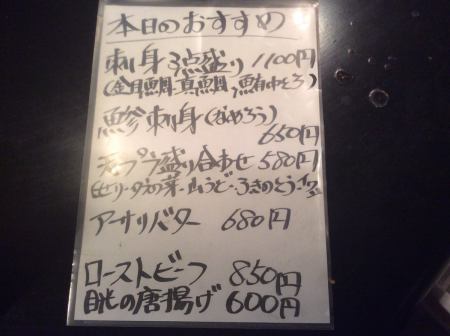 本日のおすすめ
刺身3点盛り 1100円
(金目鯛、真鯛、鮪中とろ)
鯵刺身(なめろう)
650円
天プラ盛り合わせ 580円
セリ・タラの芽・山うど・ふきのとう
アーサリバター 680円
ローストビーフ 850円
の唐揚げ 600円